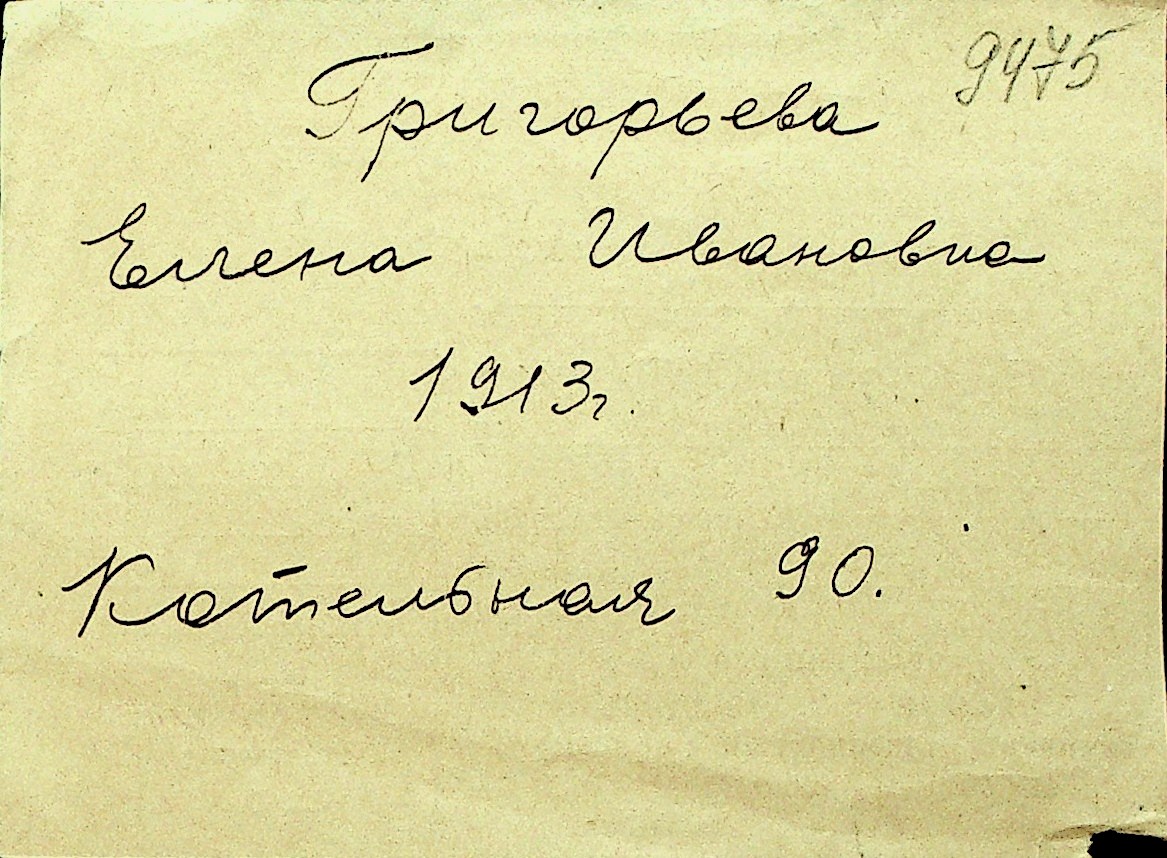 9475
Григорьева
Елена Ивановна
1913г.
Котельная 90.